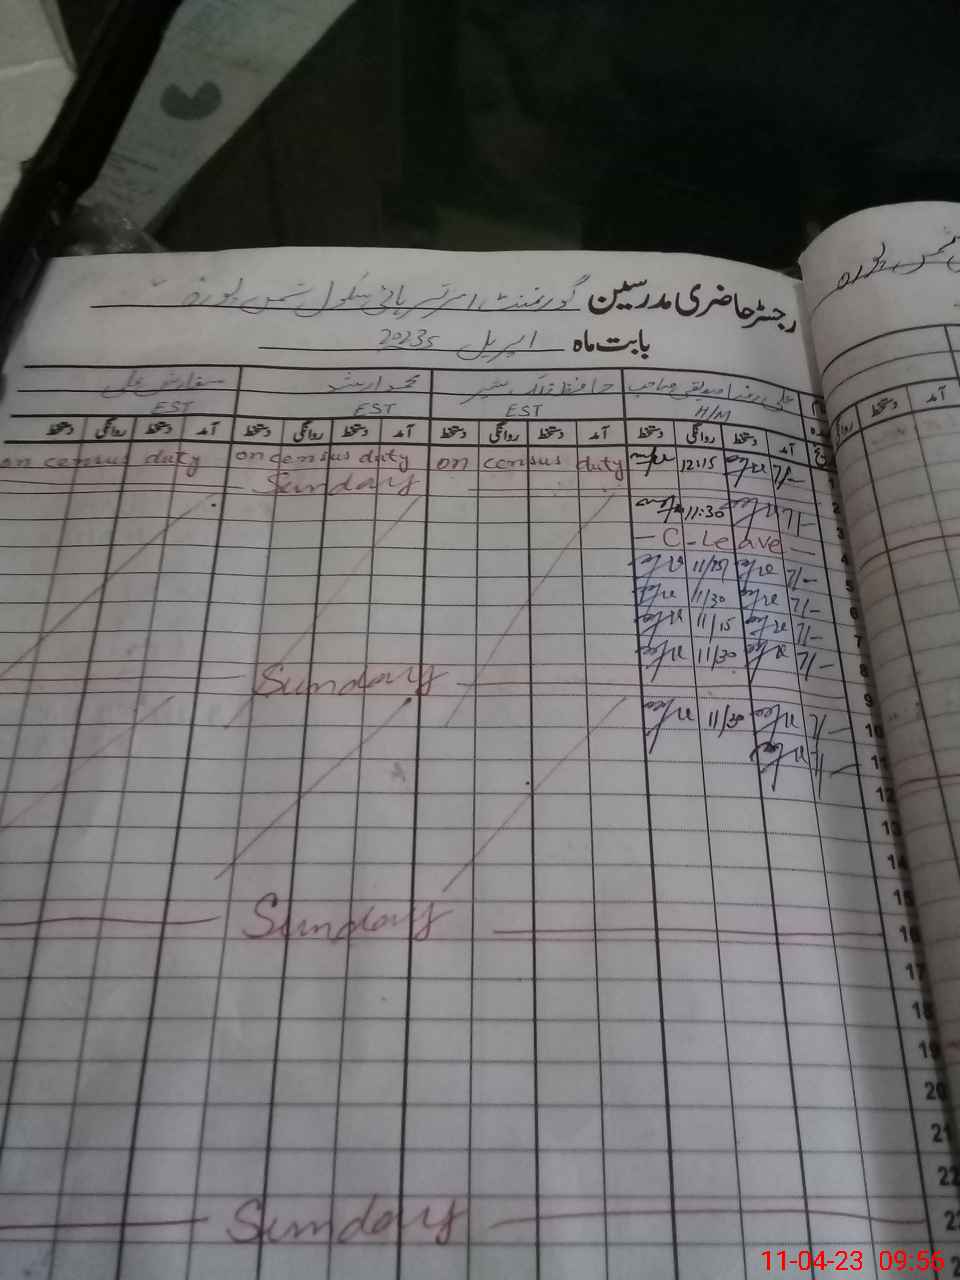 رجسٹر حاضری مدرسین گورنمنٹ ہائی سکول شمس پورہ
بابت ماہ اپریل 2023ء
علی رضا صدیقی صاحب محمد ارشد سفارش علی
H/M EST EST EST
آمد دستخط روانگی دستخط آمد دستخط روانگی دستخط آمد دستخط روانگی دستخط آمد دستخط روانگی دستخط
1 7/- 12:15 on census duty on census duty on census duty
2 Sunday
3 7/- 11:30
4 C-Leave
5 7/- 11/25
6 7/- 11/30
7 7/- 11/15
8 7/- 11/30
9 Sunday
10 7/- 11/30
11 7/-
12
13
14
15
16 Sunday
17
18
19
20
21
22
23 Sunday
آمد دستخط روانگی
11-04-23 09:56